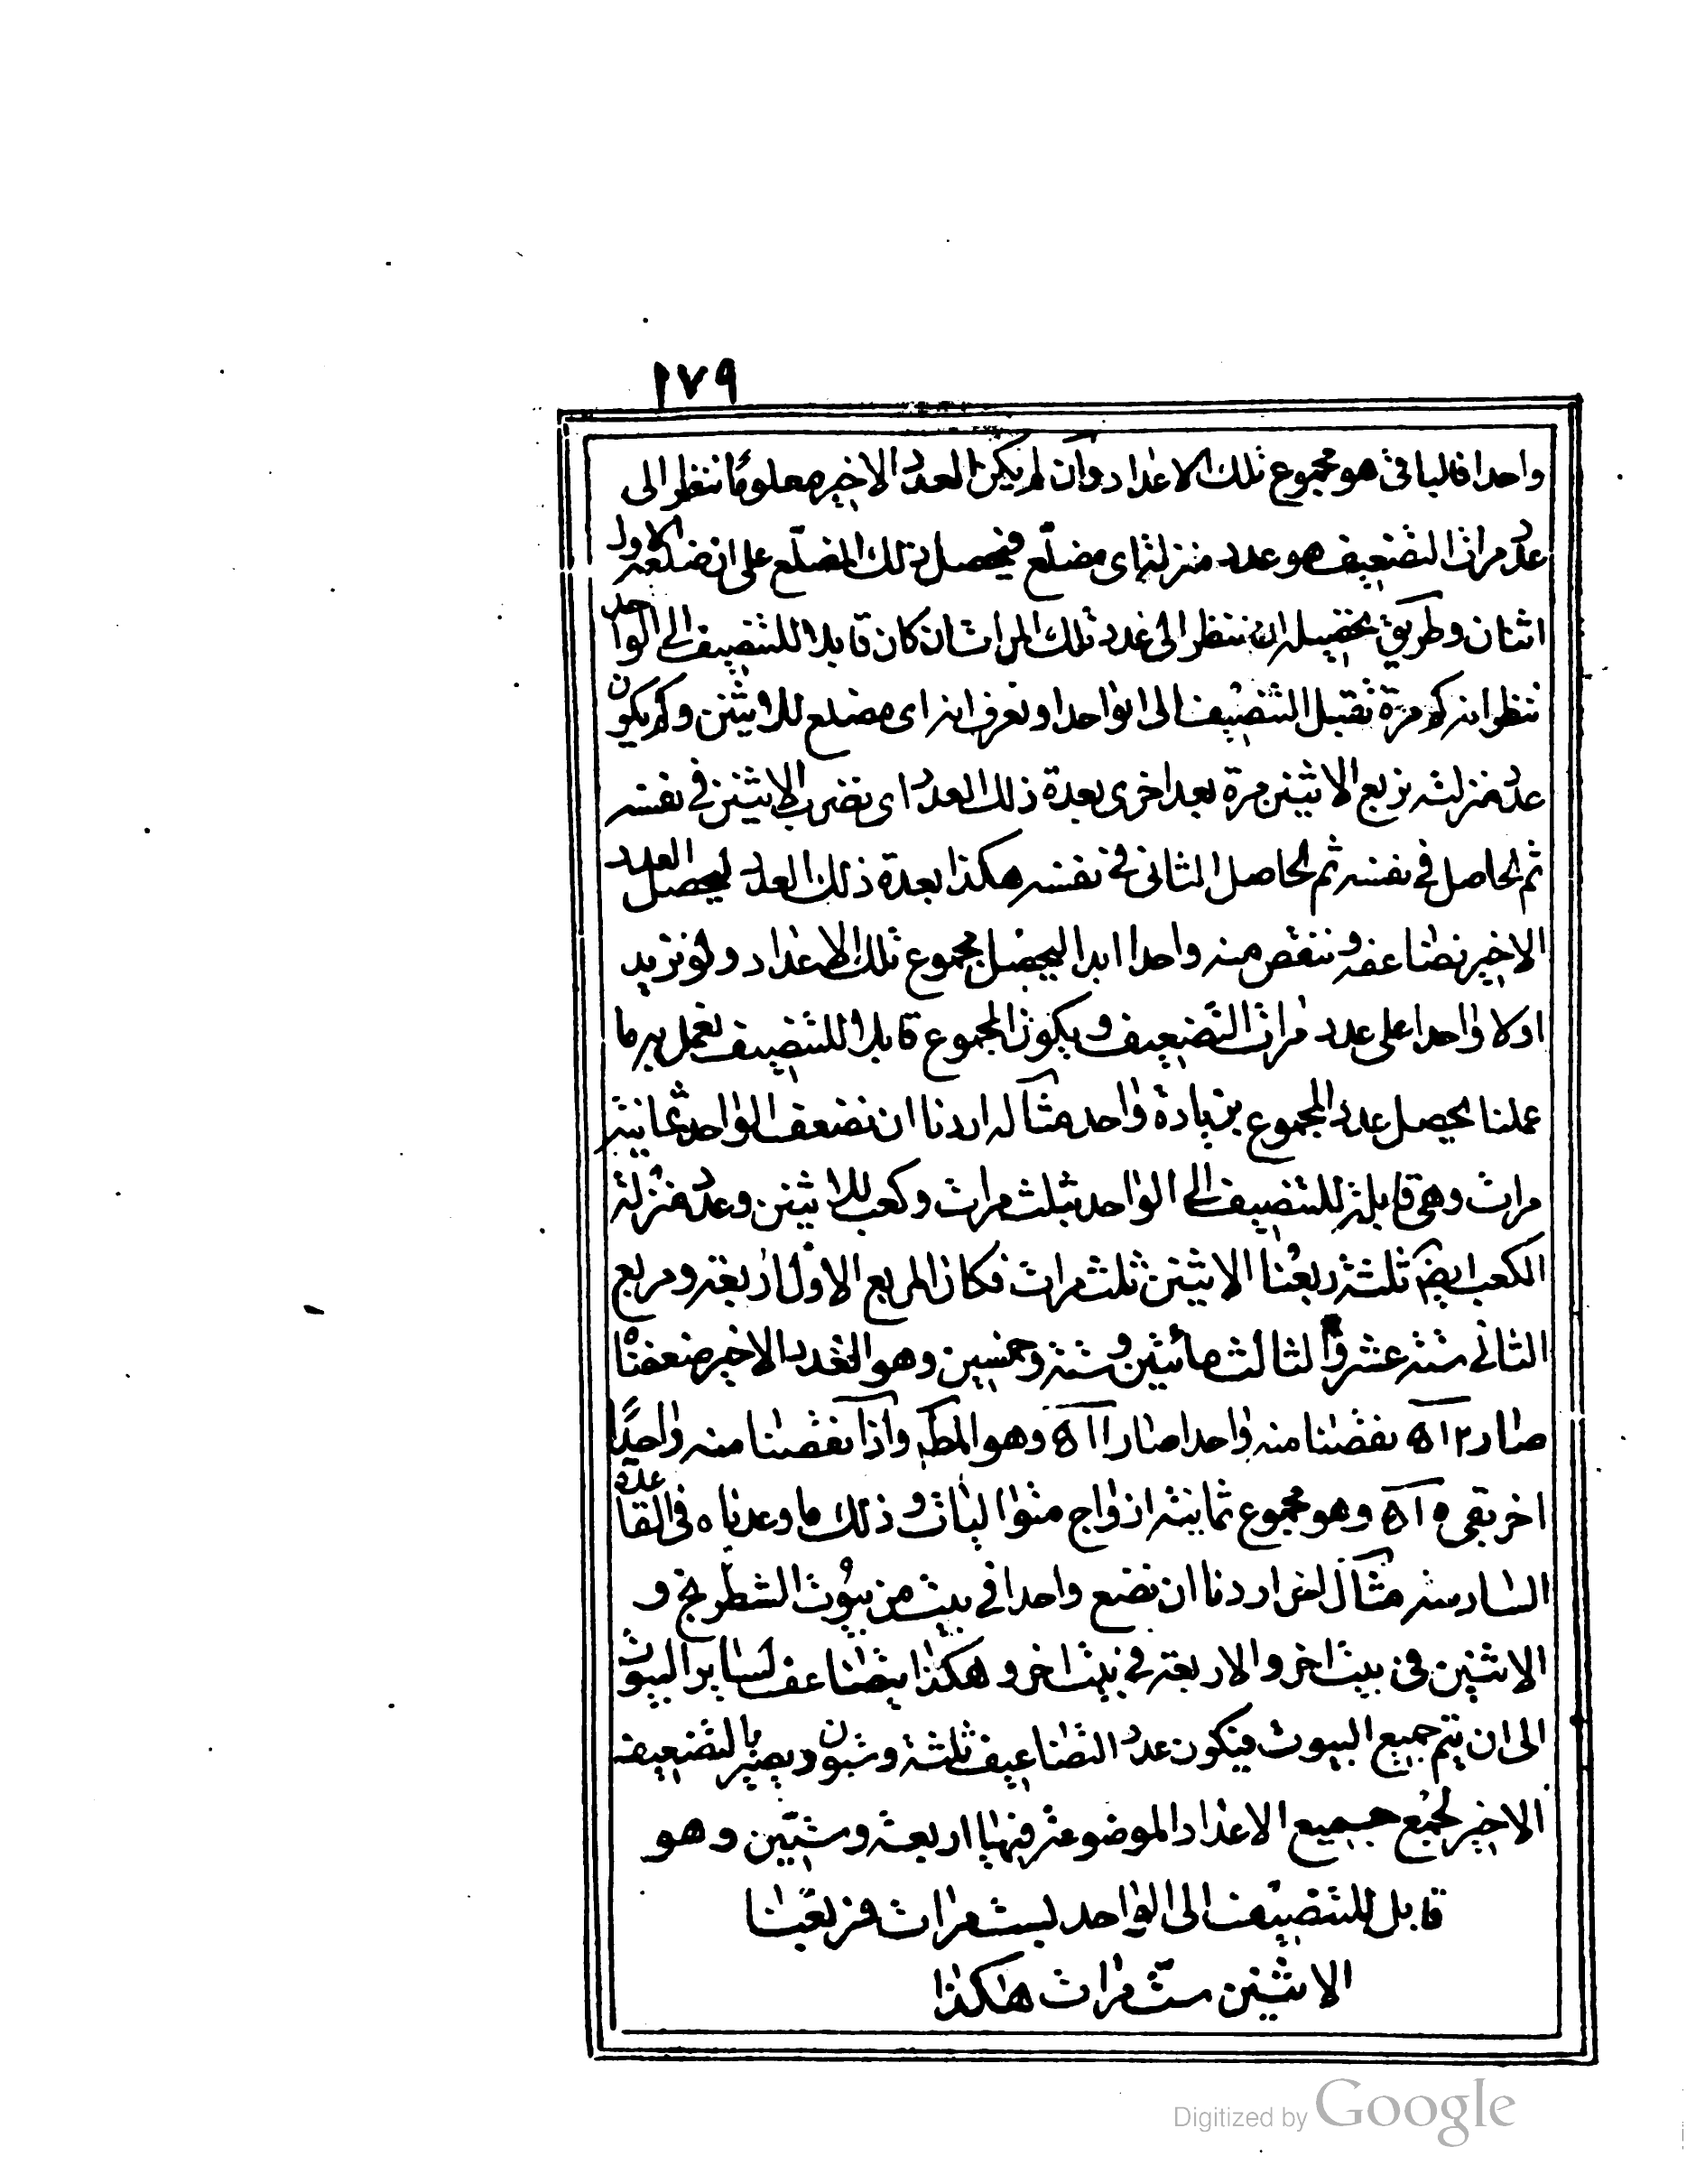 ١٧٩
واحدا فالباقى هو مجموع تلك الاعداد وان لم يكن العدد الاخير معلوما ننظر الى
عدد مرات التضعيف هو عدد منزلة اى مضلّع فيحصل ذلك المضلّع على ان ضلعه الاول
اثنان وطريق تحصيله ان ننظر الى عدد تلك المرات ان كان قابلا للتنصيف الى الواحد
ننظر انه كم مرة تقبل التنصيف الى الواحد او نعرف انه اى مضلع للاثنين وكم يكون
عدد منزلته نربع الاثنين مرة بعد اخرى بعدة ذلك العدد اى نضرب الاثنين فى نفسه
ثم الحاصل فى نفسه ثم الحاصل الثانى فى نفسه هكذا بعدة ذلك العدد ليحصل العدد
الاخير نضاعفه و ننقص منه واحدا ابدا ليحصل مجموع تلك الاعداد ولو نزيد
اولا واحدا على عدد مرات التضعيف ويكون المجموع قابلا للتنصيف نعمل به ما
عملنا يحصل عدد المجموع بزيادة واحد مثاله اردنا ان نضعف الواحد ثمانية
مرات وهى قابلة للتنصيف الى الواحد بثلث مرات وكعب للاثنين وعدد منزلة
الكعب ايضا ثلثة ربعنا الاثنين ثلث مرات فكان المربع الاول اربعة ومربع
الثانى ستة عشر والثالث مائتين وستة وخمسين وهو العدد الاخير ضعفناه
صار ٥١٢ نقصنا منه واحدا صار ٥١١ وهو المط واذا نقصنا منه واحدًا
اخر بقى ٥١٠ وهو مجموع ثمانية ازواج متواليات و ذلك ما وعدناه فى القاعدة
السادسة مثال اخر اردنا ان نضع واحدا فى بيت من بيوت الشطرنج و
الاثنين فى بيت اخر والاربعة فى بيت اخر و هكذا يتضاعف لساير البيوت
الى ان يتم جميع البيوت فيكون عدد التضاعيف ثلثة وستون ويصير بالتضعيف
الاخير لجمع جميع الاعداد الموضوعة فيها اربعة وستّين وهو
قابل للتنصيف الى الواحد بست مرات فربعنا
الاثنين ستّ مرات هكذا
Digitized by Google